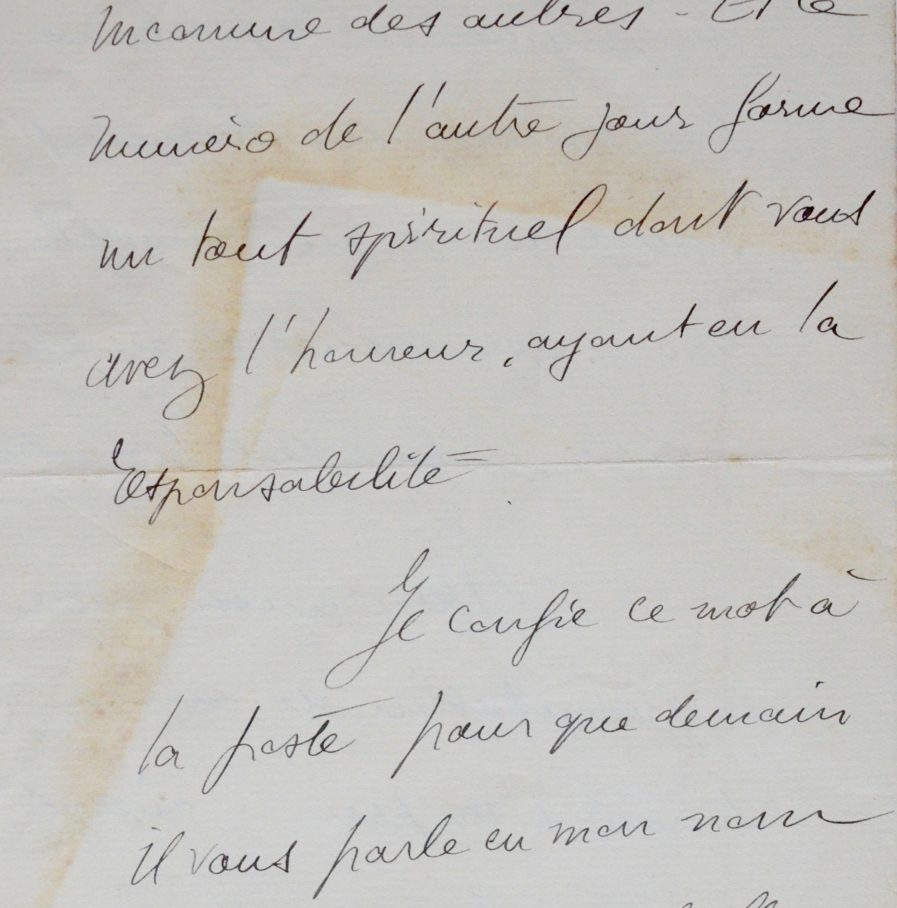 inconnue des autres - Et le
numéro de l'autre jour forme
un tout spirituel dont vous
avez l'honneur, ayant en la
responsabilité =
Je confie ce mot à
la poste pour que demain
il vous parle en mon nom